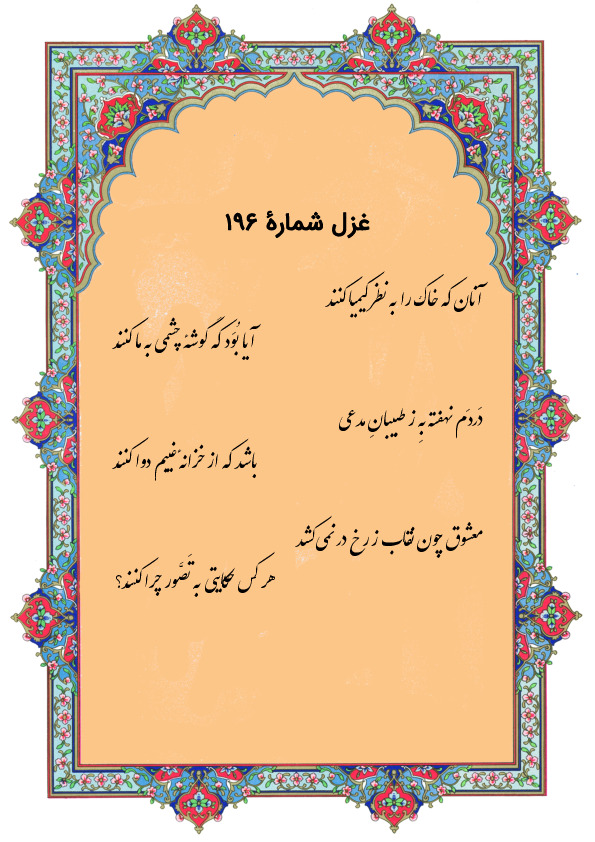 غزل شمارهٔ ۱۹۶
آنان که خاک را به نظر کیمیا کنند
آیا بُوَد که گوشهٔ چشمی به ما کنند
دَردَم نهفته بِه ز طبیبانِ مدعی
باشد که از خزانهٔ غیبم دوا کنند
معشوق چون نقاب ز رخ در نمی‌کشد
هر کس حکایتی به تَصَوّر چرا کنند؟